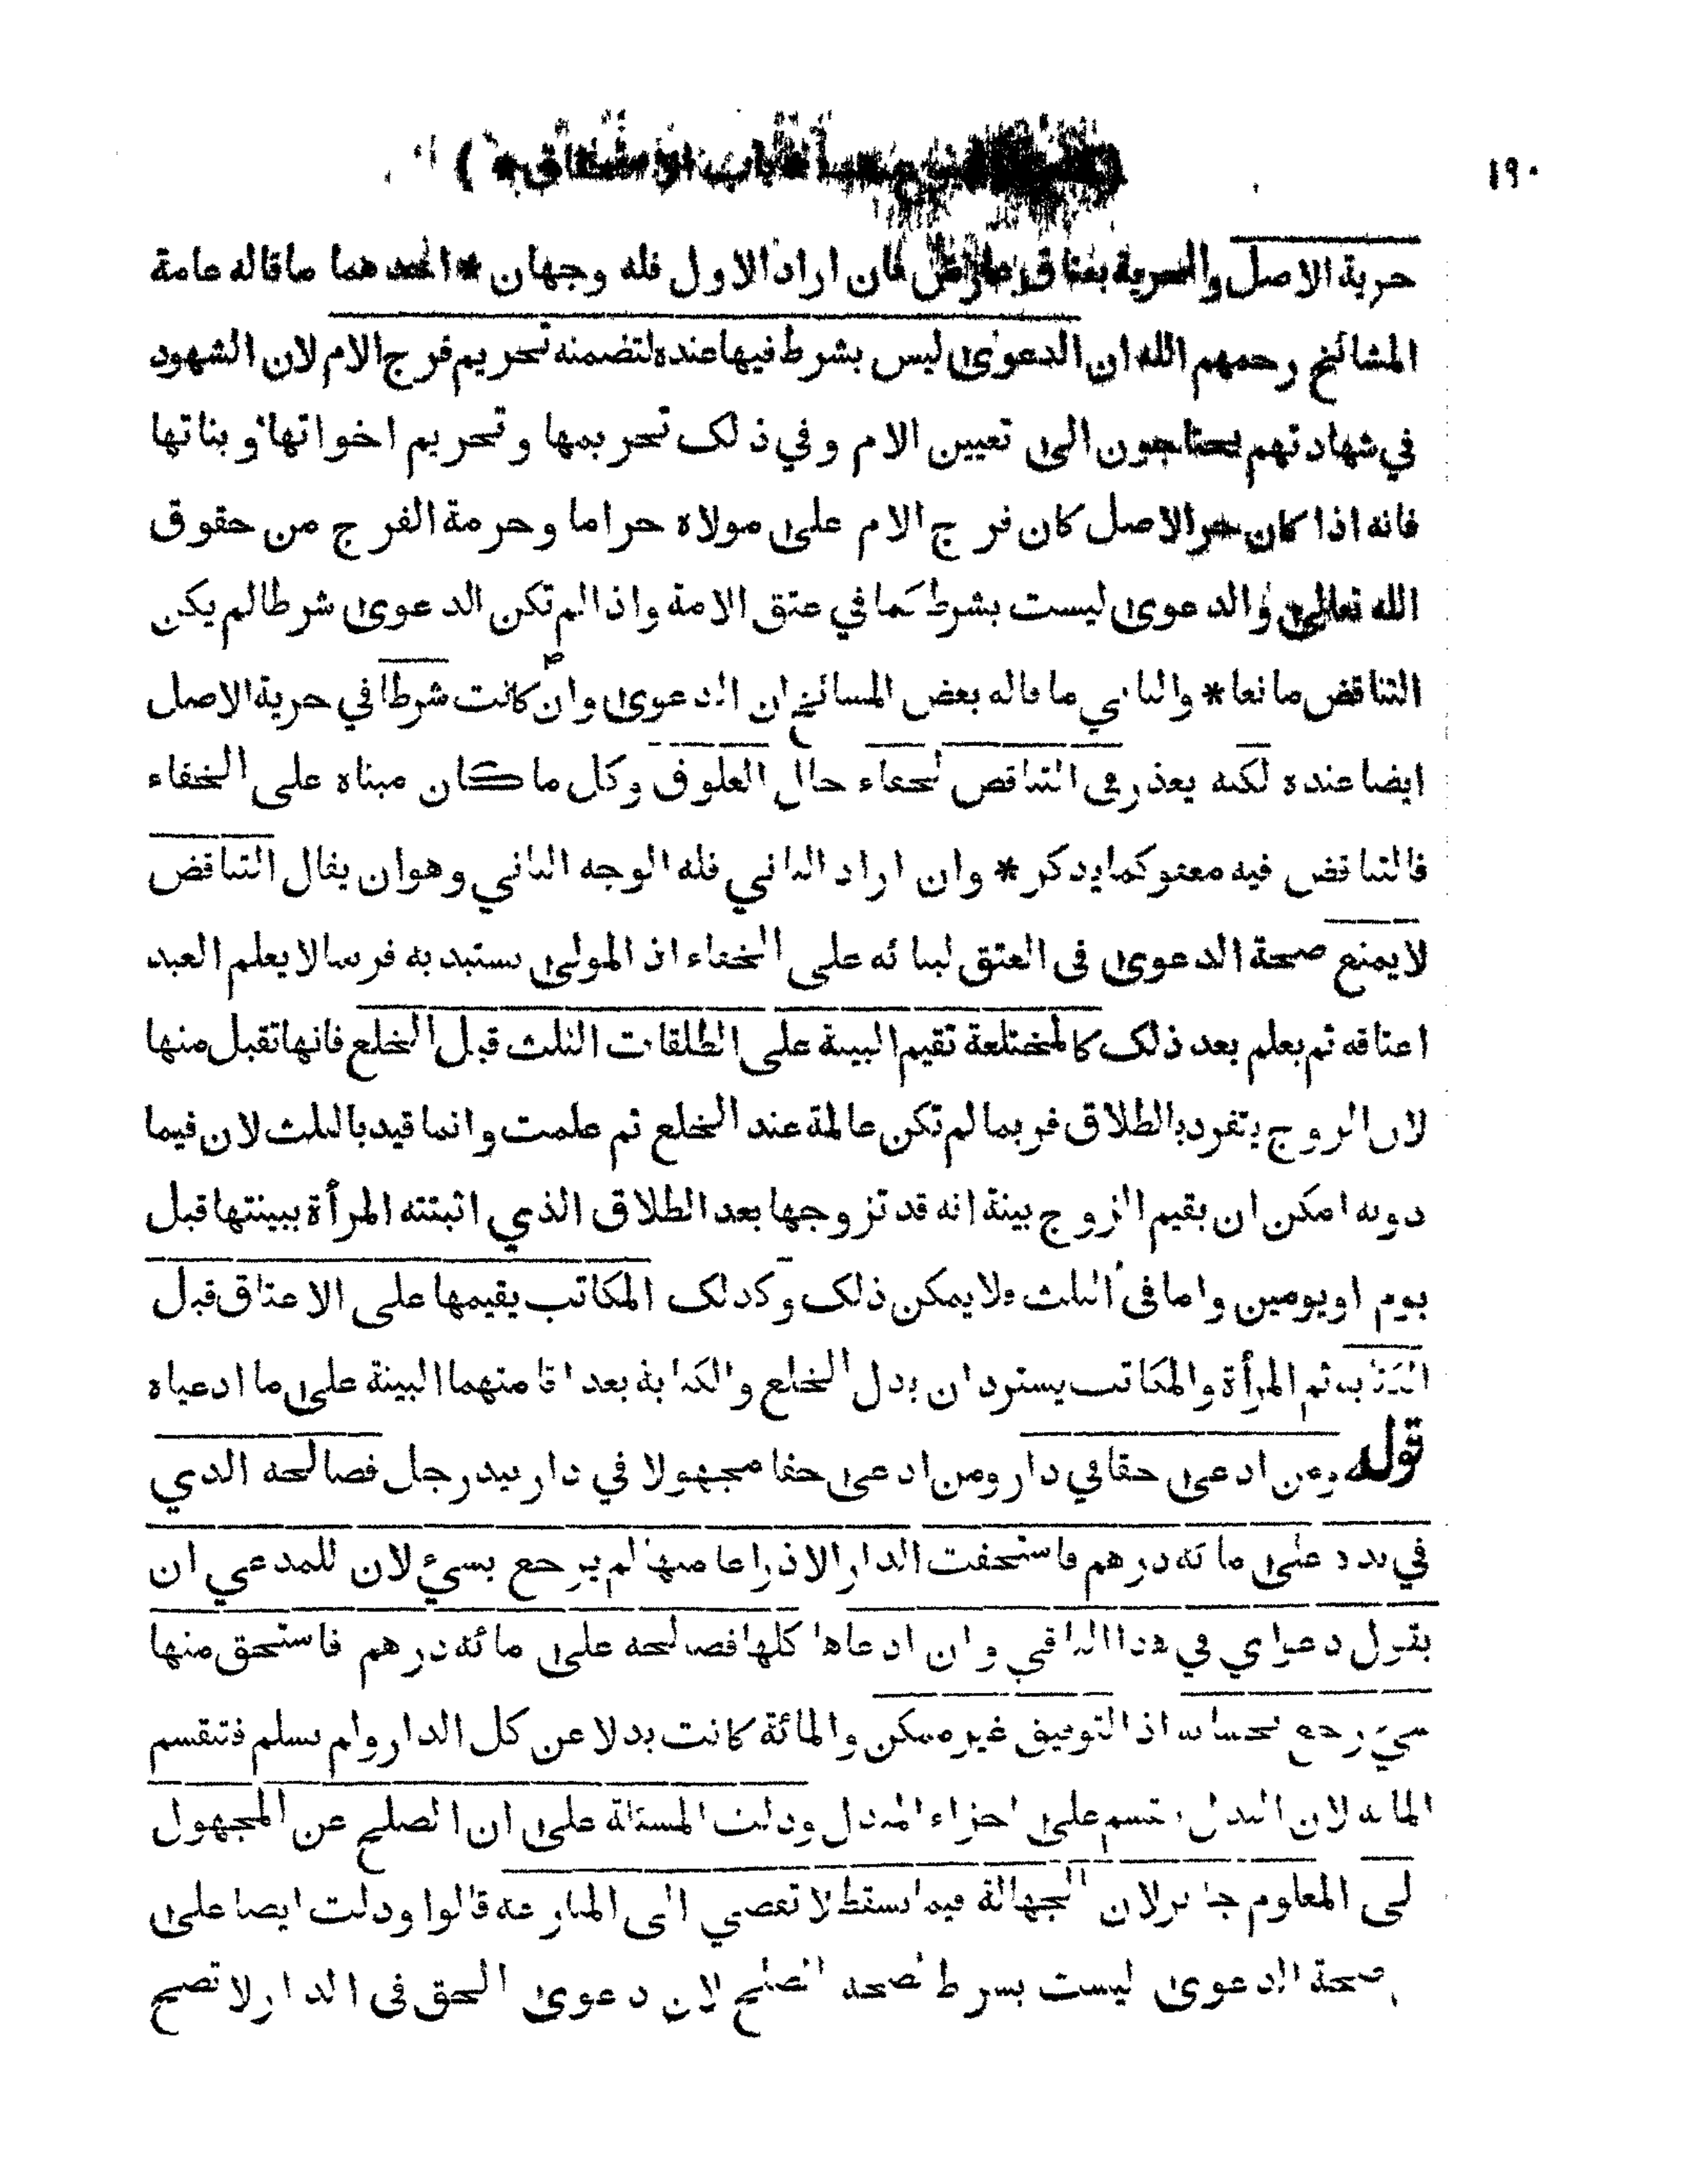 ١٩٠
باب الاستحقاق * )
حرية الاصل والحرية بعتاق عارض فان اراد الاول فله وجهان * احدهما ماقاله عامة
المشائخ رحمهم الله ان الدعوى ليس بشرط فيها عنده لتضمنه تحريم فرج الام لان الشهود
في شهادتهم يحتاجون الى تعيين الام وفي ذلك تحريمها وتحريم اخواتها وبناتها
فانه اذا كان حر الاصل كان فرج الام على مولاه حراما وحرمة الفرج من حقوق
الله تعالى والدعوى ليست بشرط كما في عتق الامة واذا لم تكن الدعوى شرطا لم يكن
التناقض مانعا * والثاني ماقاله بعض المشائخ ان الدعوى وان كانت شرطا في حرية الاصل
ايضا عنده لكنه يعذر في التناقض لخفاء حال العلوق وكل ما كان مبناه على الخفاء
فالتناقض فيه معفو كما يذكر * وان اراد الثاني فله الوجه الثاني وهو ان يقال التناقض
لا يمنع صحة الدعوى في العتق لبنائه على الخفاء اذ المولى يستبد به فربما لا يعلم العبد
اعتاقه ثم يعلم بعد ذلك كالمختلعة تقيم البينة على الطلقات الثلث قبل الخلع فانها تقبل منها
لان الزوج يتفرد بالطلاق فربما لم تكن عالمة عند الخلع ثم علمت وانما قيد بالثلث لان فيما
دونه امكن ان يقيم الزوج بينة انه قد تزوجها بعد الطلاق الذي اثبتته المرأة ببينتها قبل
يوم او يومين واما في الثلث فلا يمكن ذلك وكذلك المكاتب يقيمها على الاعتاق قبل
الكتابة ثم المرأة والمكاتب يستردان بدل الخلع والكتابة بعد اقامتهما البينة على ما ادعياه
قوله ومن ادعى حقا في دار ومن ادعى حقا مجهولا في دار بيد رجل فصالحه الذي
في يده على مائة درهم فاستحقت الدار الا ذراعا منها لم يرجع بشيء لان للمدعي ان
يقول دعواي في هذا الباقي وان ادعاها كلها فصالحه على مائة درهم فاستحق منها
شيء رجع بحسابه اذ التوفيق غير ممكن والمائة كانت بدلا عن كل الدار ولم يسلم فتقسم
المائة لان البدل يقسم على اجزاء المبدل ودلت المسئلة على ان الصلح عن المجهول
لى المعلوم جائز لان الجهالة فيما يسقط لا تفضي الى المنازعة قالوا ودلت ايضا على
صحة الدعوى ليست بشرط لصحة الصلح لان دعوى الحق في الدار لا تصح